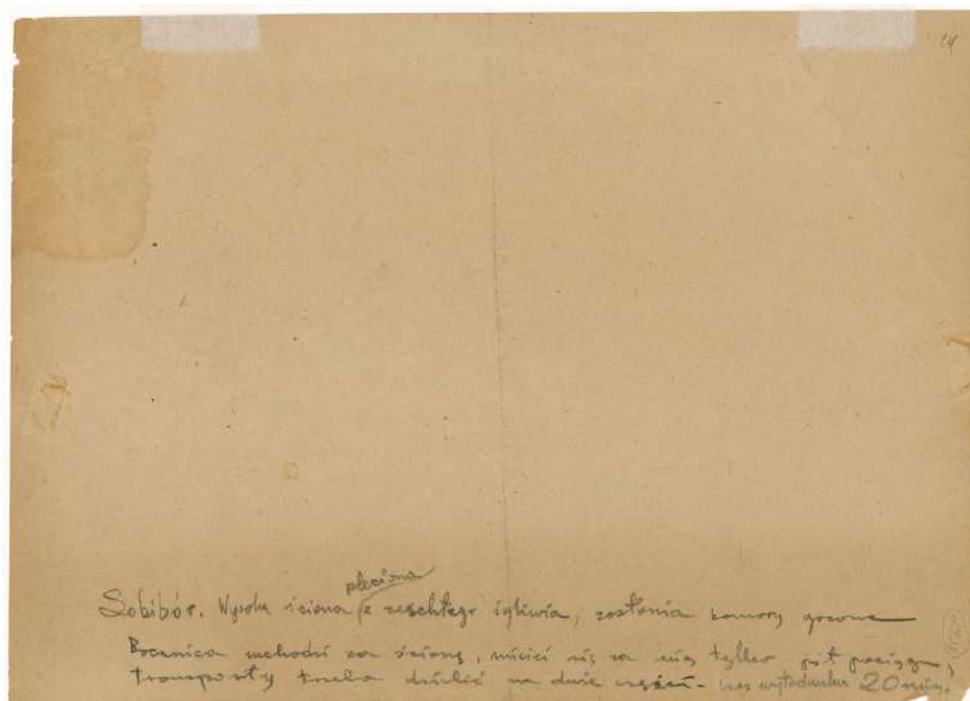 14
pleciona
Sobibór. Wysoka ściana z zeschłego igliwia, zasłania komory gazowe
Bocznica wchodzi za ścianę, mieści się za nią tylko pół pociągu,
transporty trzeba dzielić na dwie części - czas wyładunku 20 min.